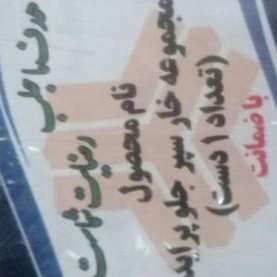 هدف ما جلب
رضایت شماست
نام محصول
مجموعه خار سپر جلو پراید
(تعداد ۱ دست)
با ضمانت